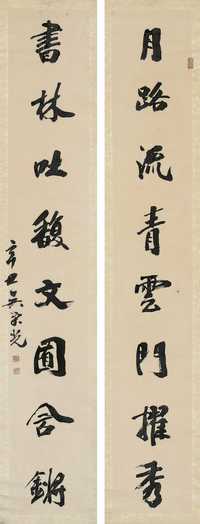 月路流青雲門擢秀
書林吐馥文圃含鏘
辛丑吳榮光